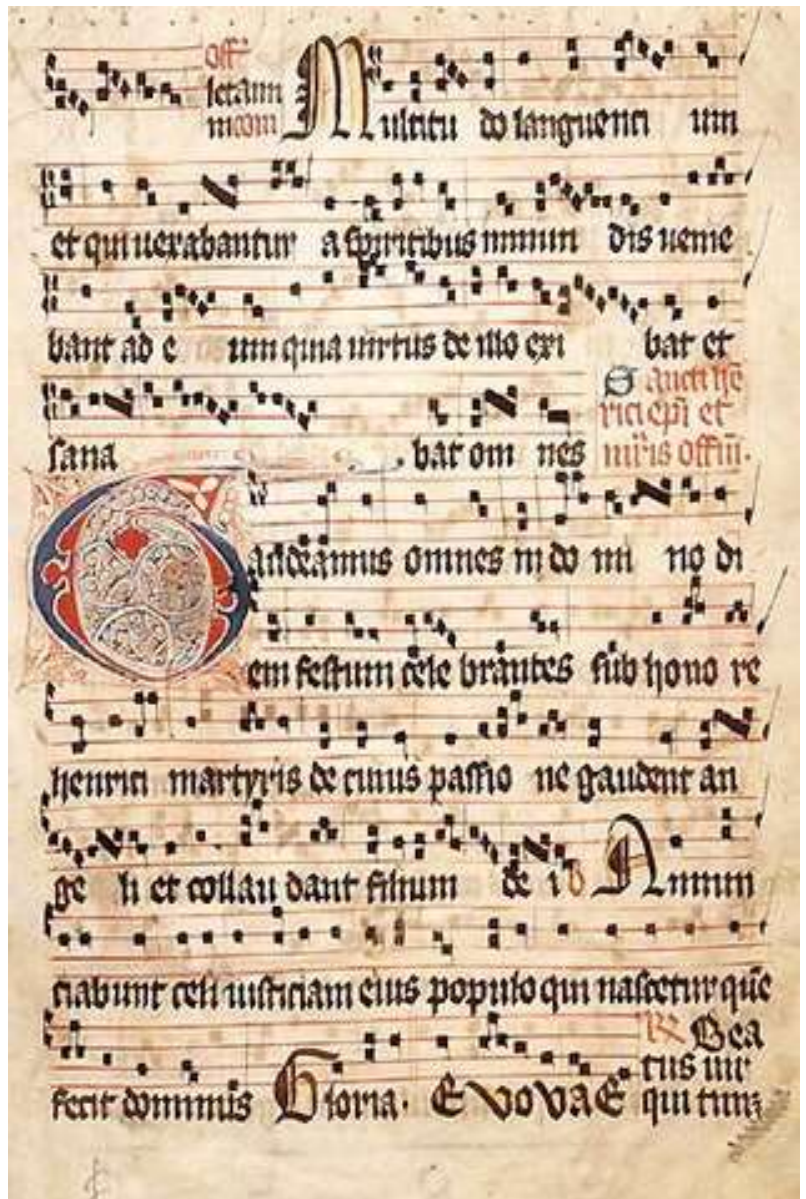 off
letami
ni com
Multitu do languenti um
et qui uexabantur a spiritibus inmun dis uenie
bant ad e um quia uirtus de illo exi bat et
sana bat om nes
Sancti he
rici epi et
mris offm.
Gaudeamus omnes in do mi no di
em festum cele brantes sub hono re
henrici martyris de cuius passio ne gaudent an
ge li et collau dant filium de i
Annun
ciabunt celi iusticiam eius populo qui nascetur que
fecit dominus Gloria. EVOVAE
Bea
tus uir
qui tim